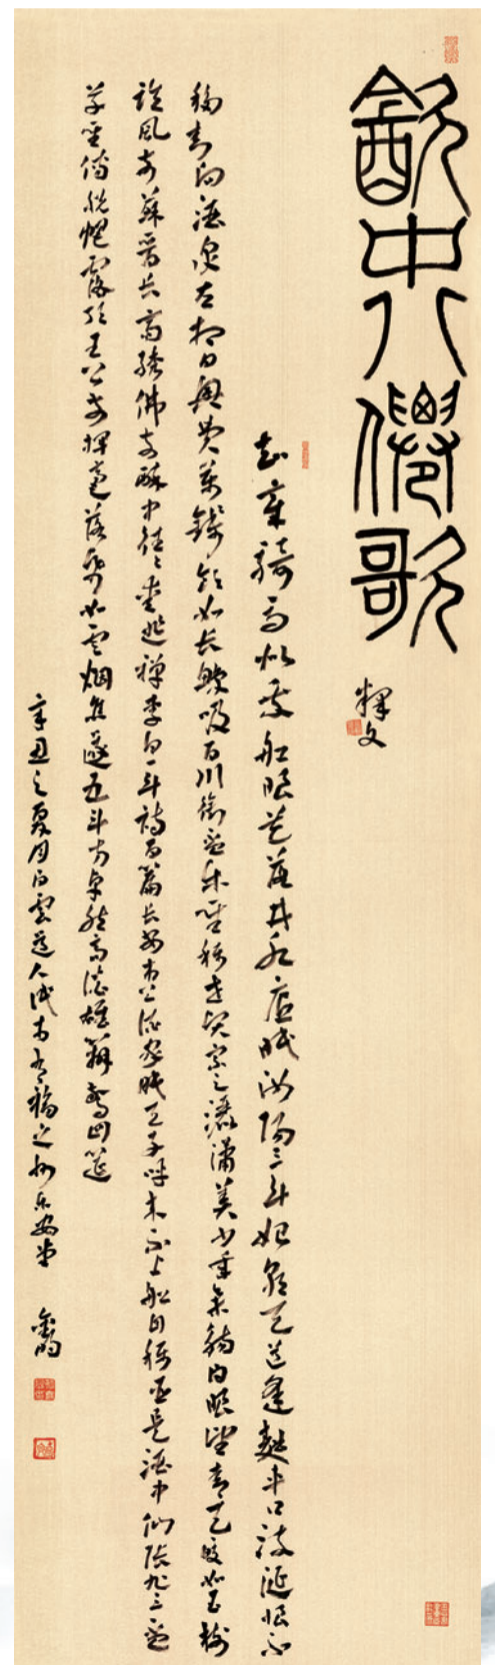 㱃中八僊歌
釋文
知章騎馬似乘船眼花落井水底眠汝陽三斗始朝天道逢麴車口流涎恨不
移封向酒泉左相日興費萬錢飲如長鯨吸百川銜盃樂聖稱世賢宗之灑瀟美少年舉觴白眼望青天皎如玉樹
臨風前蘇晉長齋繡佛前醉中往々愛逃禪李白一斗詩百篇長安市上酒家眠天子呼来不上船自稱臣是酒中仙張旭三盃
草聖傳脫帽露頂王公前揮毫落紙如雲烟焦遂五斗方卓然高談雄辯驚四筵
辛丑之夏月白雲道人